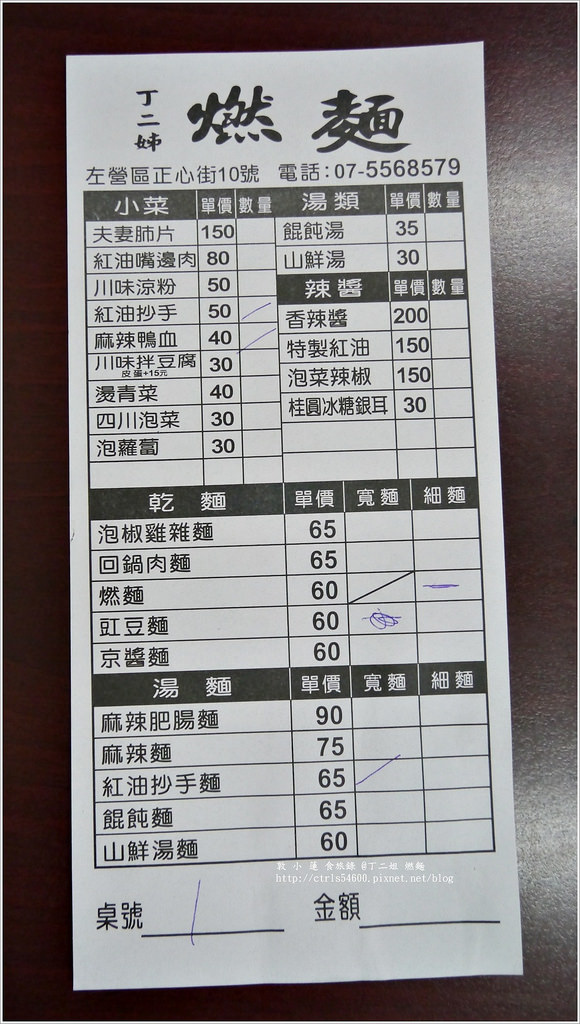 丁二姊 燃麵
左營區正心街10號 電話:07-5568579
小菜 單價 數量
夫妻肺片 150
紅油嘴邊肉 80
川味涼粉 50
紅油抄手 50
麻辣鴨血 40
川味拌豆腐 30
皮蛋+15元
燙青菜 40
四川泡菜 30
泡蘿蔔 30
湯類 單價 數量
餛飩湯 35
山鮮湯 30
辣醬 單價 數量
香辣醬 200
特製紅油 150
泡菜辣椒 150
桂圓冰糖銀耳 30
乾麵 單價 寬麵 細麵
泡椒雞雜麵 65
回鍋肉麵 65
燃麵 60
豇豆麵 60
京醬麵 60
湯麵 單價 寬麵 細麵
麻辣肥腸麵 90
麻辣麵 75
紅油抄手麵 65
餛飩麵 65
山鮮湯麵 60
敦小蓮食旅錄@丁二姐 燃麵
http://ctrls54600.pixnet.net/blog
桌號 1 金額